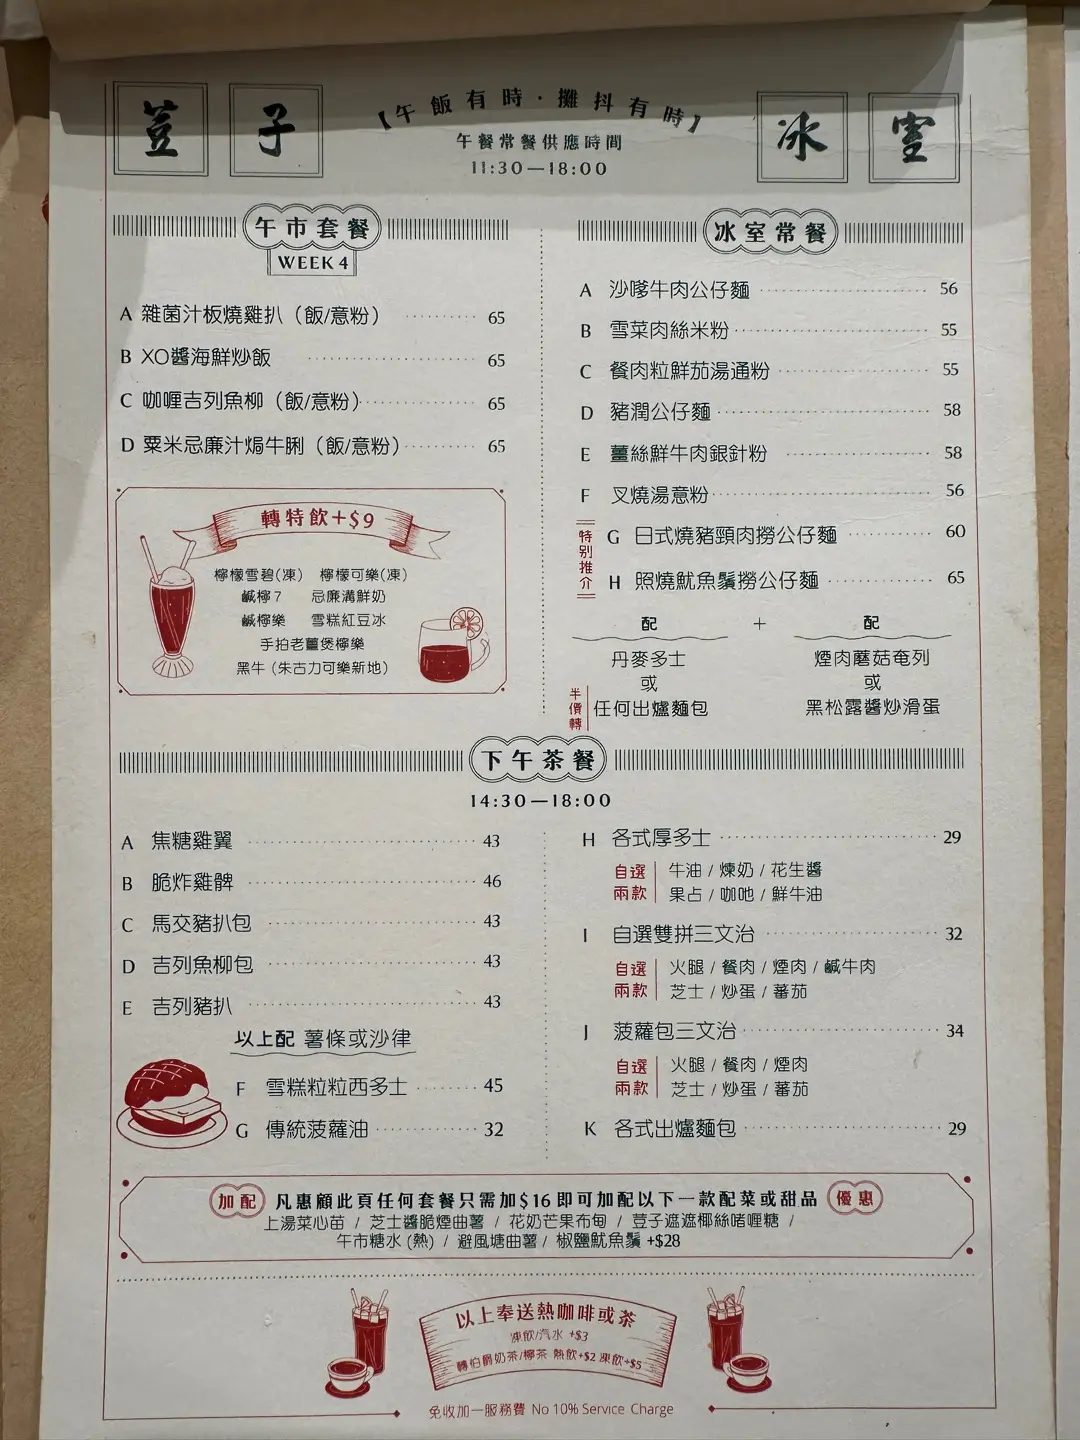 荳子冰室
【午飯有時·攤抖有時】
午餐常餐供應時間
11:30—18:00
午市套餐
WEEK 4
A 雜菌汁板燒雞扒（飯/意粉） 65
B XO醬海鮮炒飯 65
C 咖喱吉列魚柳（飯/意粉） 65
D 粟米忌廉汁焗牛脷（飯/意粉） 65
轉特飲+$9
檸檬雪碧(凍) 檸檬可樂(凍)
鹹檸7 忌廉溝鮮奶
鹹檸樂 雪糕紅豆冰
手拍老薑煲檸樂
黑牛 (朱古力可樂新地)
冰室常餐
A 沙嗲牛肉公仔麵 56
B 雪菜肉絲米粉 55
C 餐肉粒鮮茄湯通粉 55
D 豬潤公仔麵 58
E 薑絲鮮牛肉銀針粉 58
F 叉燒湯意粉 56
特別推介
G 日式燒豬頸肉撈公仔麵 60
H 照燒魷魚鬚撈公仔麵 65
配 + 配
丹麥多士 煙肉蘑菇奄列
或 或
半價轉 任何出爐麵包 黑松露醬炒滑蛋
下午茶餐
14:30—18:00
A 焦糖雞翼 43
B 脆炸雞髀 46
C 馬交豬扒包 43
D 吉列魚柳包 43
E 吉列豬扒 43
以上配 薯條或沙律
F 雪糕粒粒西多士 45
G 傳統菠蘿油 32
H 各式厚多士 29
自選 牛油 / 煉奶 / 花生醬
兩款 果占 / 咖吔 / 鮮牛油
I 自選雙拼三文治 32
自選 火腿 / 餐肉 / 煙肉 / 鹹牛肉
兩款 芝士 / 炒蛋 / 蕃茄
J 菠蘿包三文治 34
自選 火腿 / 餐肉 / 煙肉
兩款 芝士 / 炒蛋 / 蕃茄
K 各式出爐麵包 29
加配 凡惠顧此頁任何套餐只需加$16即可加配以下一款配菜或甜品 優惠
上湯菜心苗 / 芝士醬脆煙曲薯 / 花奶芒果布甸 / 荳子遮遮椰絲啫喱糖 /
午市糖水 (熱) / 避風塘曲薯 / 椒鹽魷魚鬚 +$28
以上奉送熱咖啡或茶
凍飲/汽水 +$3
轉伯爵奶茶/檸茶 熱飲+$2 凍飲+$5
免收加一服務費 No 10% Service Charge